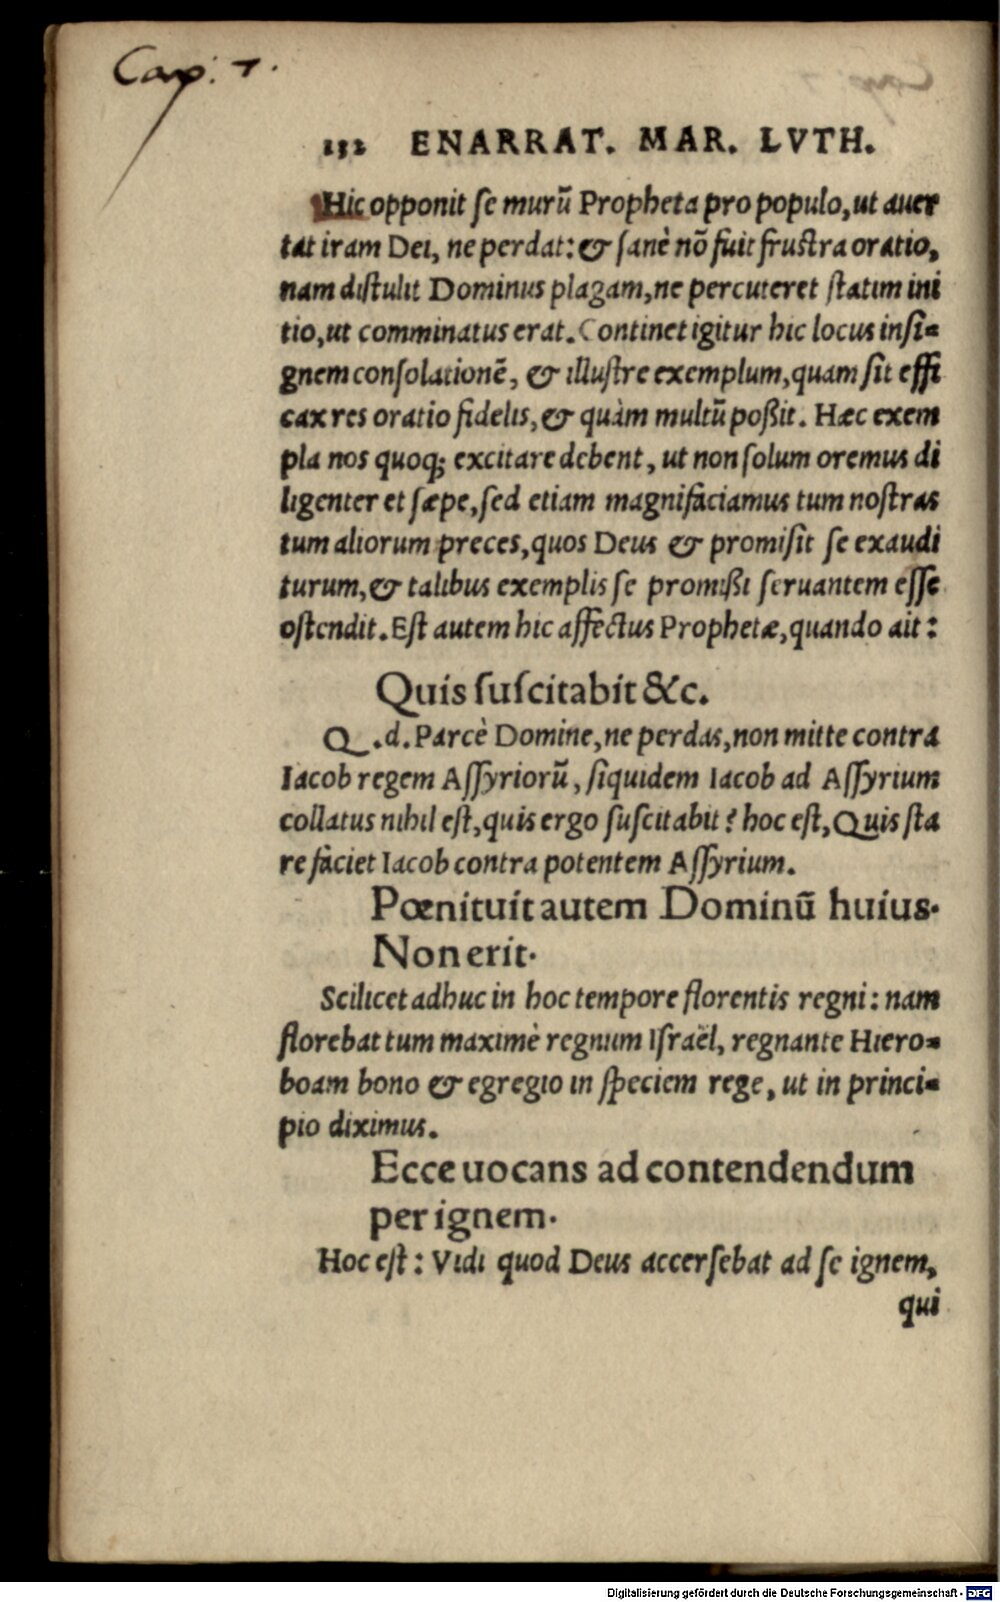 Cap: 7.
132 ENARRAT. MAR. LVTH.
Hic opponit se murũ Propheta pro populo, ut auer
tat iram Dei, ne perdat: & sanè nõ fuit frustra oratio,
nam distulit Dominus plagam, ne percuteret statim ini
tio, ut comminatus erat. Continet igitur hic locus insi=
gnem consolationẽ, & illustre exemplum, quam sit effi
cax res oratio fidelis, & quàm multũ poßit. Hæc exem
pla nos quoq; excitare debent, ut non solum oremus di
ligenter et sæpe, sed etiam magnifaciamus tum nostras
tum aliorum preces, quos Deus & promisit se exaudi
turum, & talibus exemplis se promißi seruantem esse
ostendit. Est autem hic affectus Prophetæ, quando ait:
Quis suscitabit &c.
Q. d. Parcè Domine, ne perdas, non mitte contra
Iacob regem Assyriorũ, siquidem Iacob ad Assyrium
collatus nihil est, quis ergo suscitabit? hoc est, Quis sta
re faciet Iacob contra potentem Assyrium.
Pœnituit autem Dominũ huius.
Non erit.
Scilicet adhuc in hoc tempore florentis regni: nam
florebat tum maximè regnum Israël, regnante Hiero=
boam bono & egregio in speciem rege, ut in princi=
pio diximus.
Ecce uocans ad contendendum
per ignem.
Hoc est: Vidi quod Deus accersebat ad se ignem,
qui
Digitalisierung gefördert durch die Deutsche Forschungsgemeinschaft - DFG